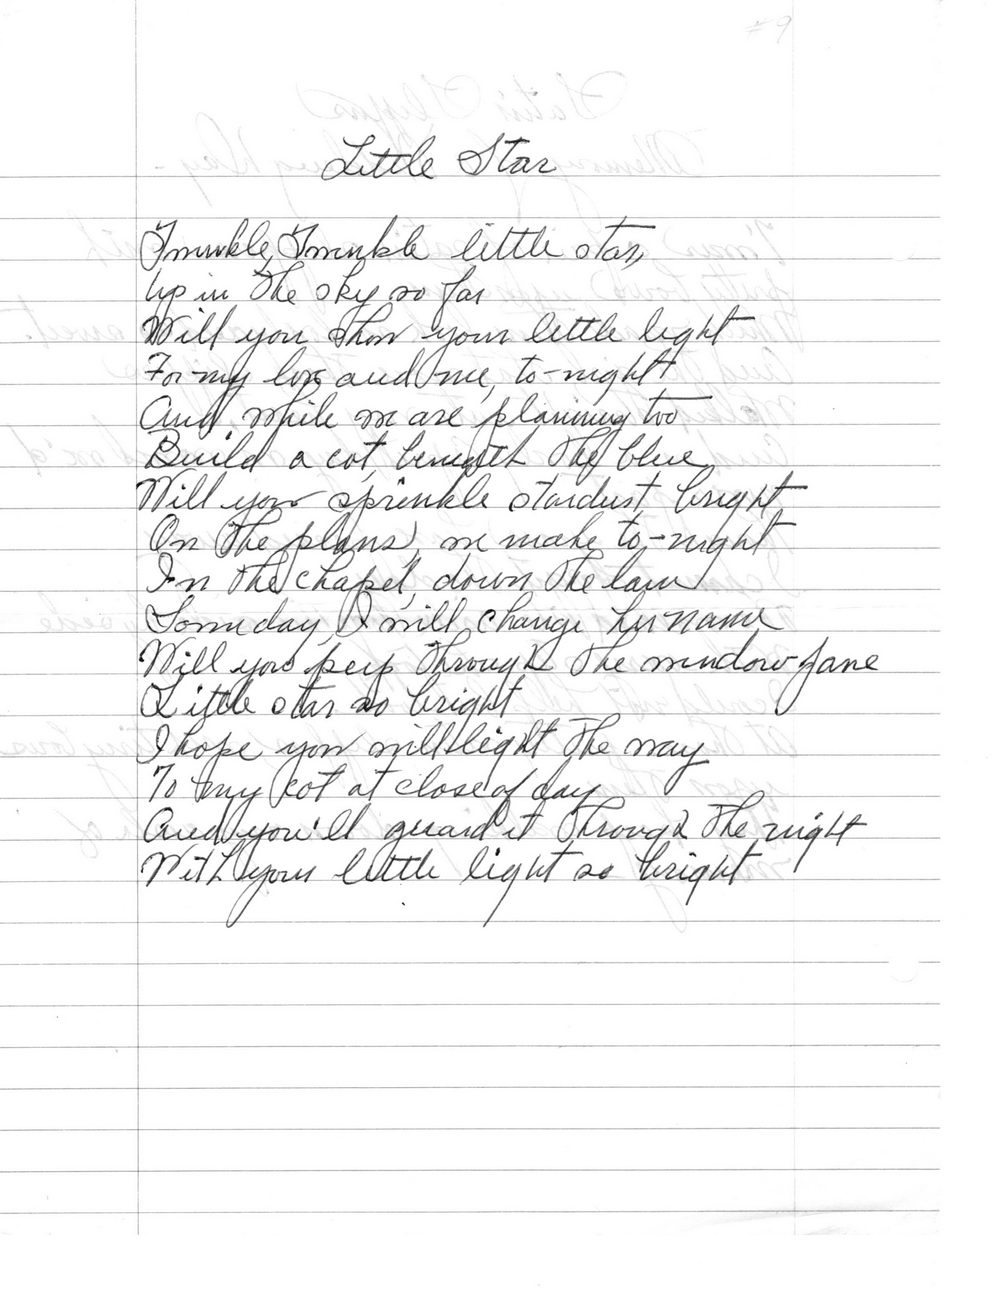 #9
Little Star
Twinkle, Twinkle little star,
Up in the sky so far
Will you show your little light
For my love and me, to-night
And, while we are planning too
Build a cot, beneath the blue,
Will you sprinkle stardust, bright,
On the plans, we make to-night
In the chapel, down the lane
Someday, I will change her name
Will you peep through the window-pane
Little star so bright
I hope you will light the way
To my cot at close of day
And you'll guard it through the night
With your little light so bright